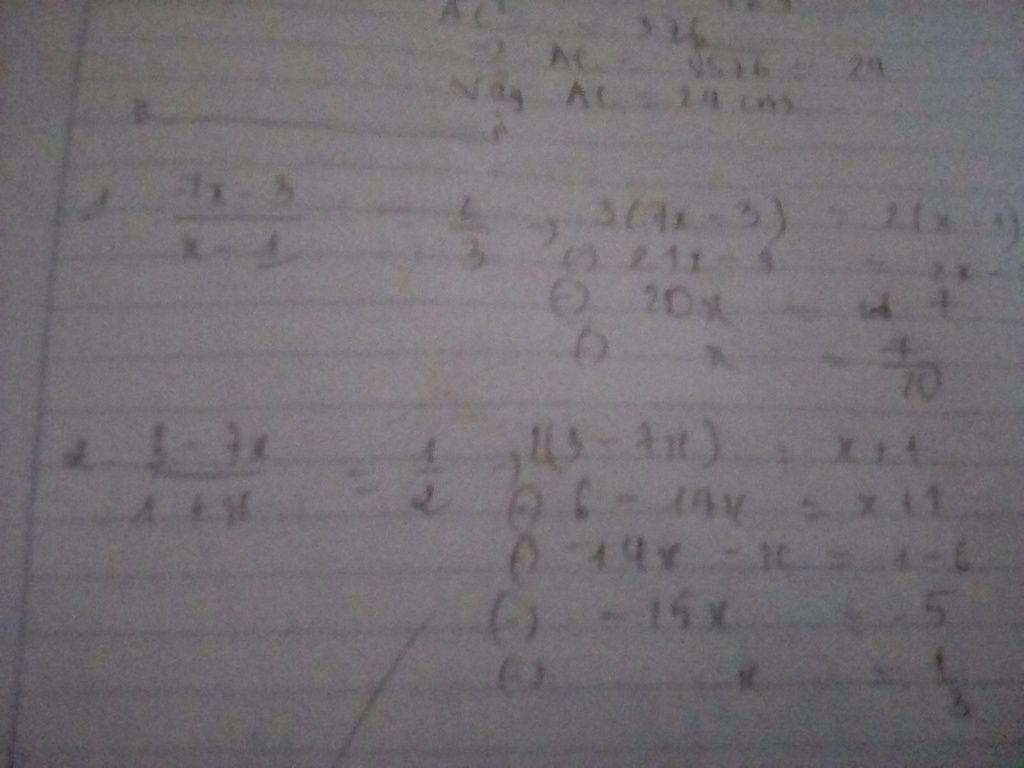 AC² = 576
=) AC = √576 = 24
Vậy AC = 24 cm
1 (7x - 3)/(x - 1) = 2/3 =) 3(7x - 3) = 2(x - 1)
(-) 21x - 9 = 2x -
(-) 20x = 7
(-) x = 7/20
2 (3 - 7x)/(1 + x) = 1/2 =) 2(3 - 7x) = x + 1
(-) 6 - 14x = x + 1
(-) -14x - x = 1 - 6
(-) -15x = -5
(-) x = 1/3